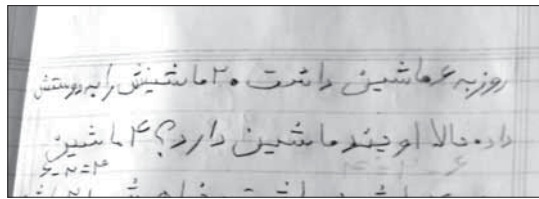 روزبه ۶ ماشین داشت. ۲ ماشینش را به دوستش
داده حالا او چند ماشین دارد؟ ۴ ماشین
۶-۲=۴